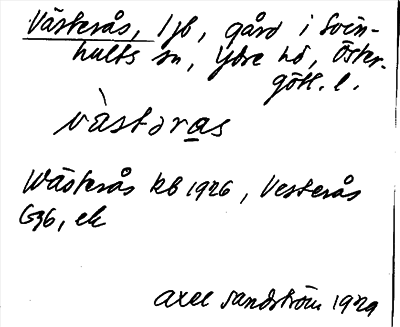 Västerås, 1 jb, gård i Svin-
hults sn, Ydre hd, Öster-
götl. l.
vàstəras
Wästerås kb 1926, Vesterås
G36, ek
Axel Sandström 1929